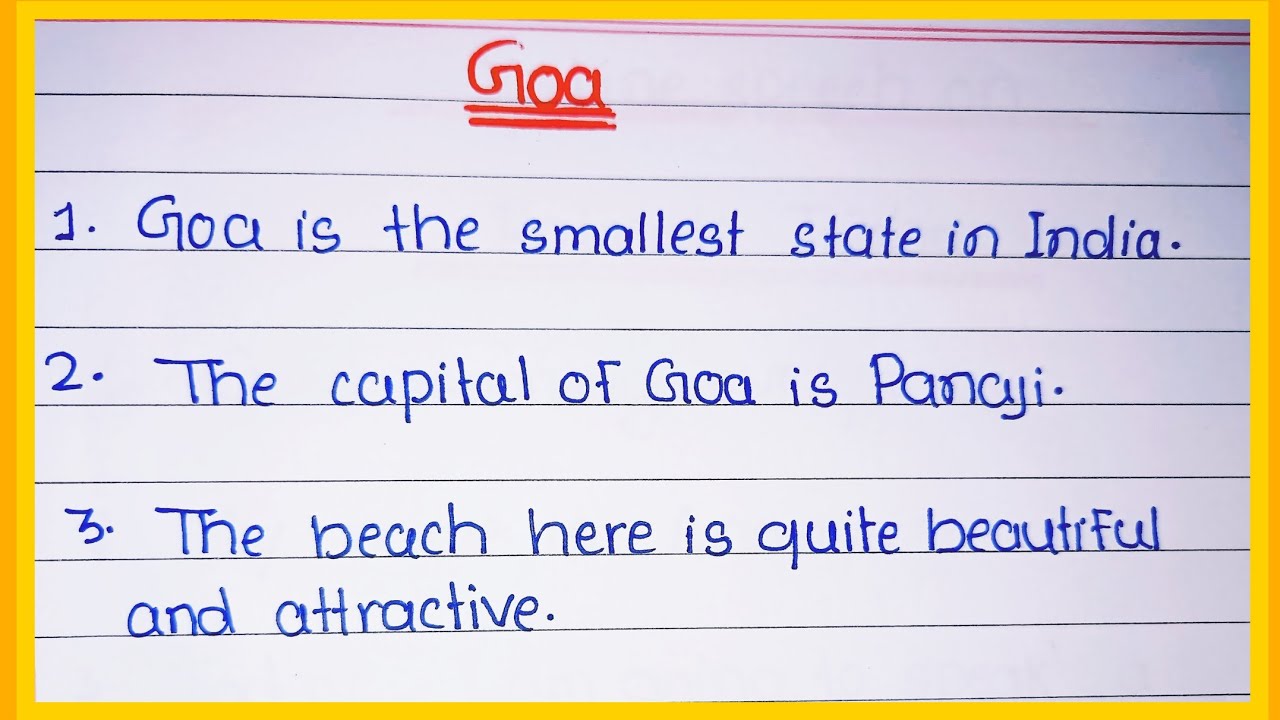 Goa
1. Goa is the smallest state in India.
2. The capital of Goa is Panaji.
3. The beach here is quite beautiful
and attractive.